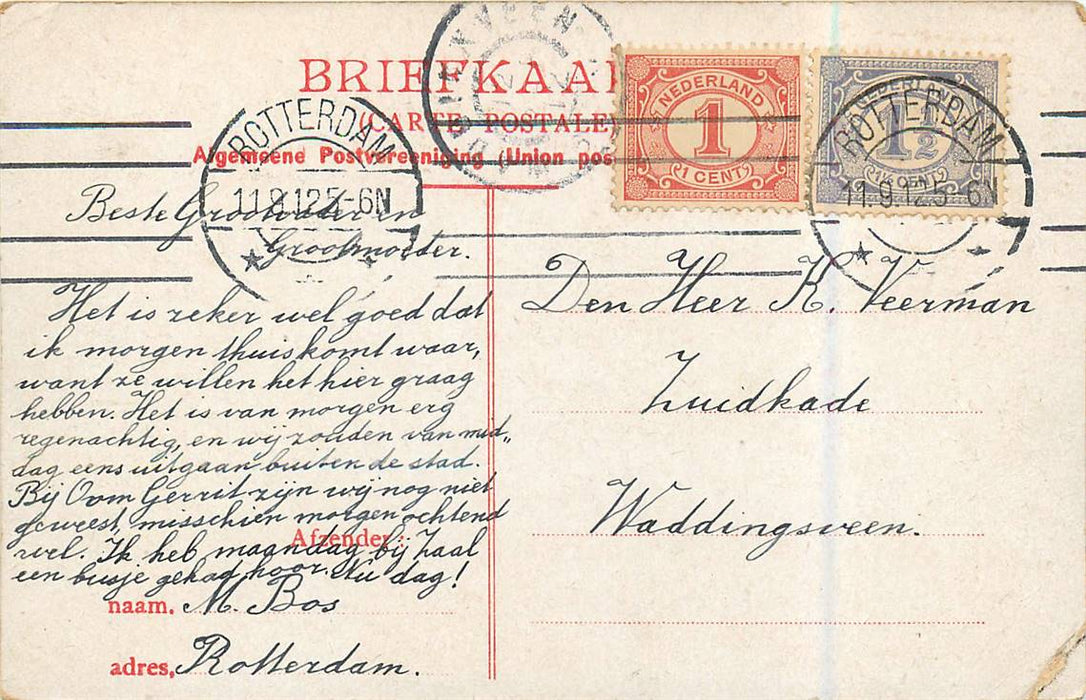 BRIEFKAA
(CARTE POSTALE)
Algemeene Postvereeniging (Union pos
NEDERLAND
1
1 CENT
NEDERLAND
1½
1½ CENT
ROTTERDAM
11.9.12 5-6N
ROTTERDAM
11.9.12 5-6N
Beste Grootvader en
Grootmoeder.
Het is zeker wel goed dat
ik morgen thuiskomt waar,
want ze willen het hier graag
hebben. Het is van morgen erg
regenachtig, en wij zouden van mid„
dag eens uitgaan buiten de stad.
Bij Oom Gerrit zijn wij nog niet
geweest, misschien morgenochtend
wel. Ik heb maandag bij Zaal
een busje gehad hoor. Nu dag!
Afzender:
naam. M. Bos
adres, Rotterdam.
Den Heer K. Veerman
Zuidkade
Waddingsveen.